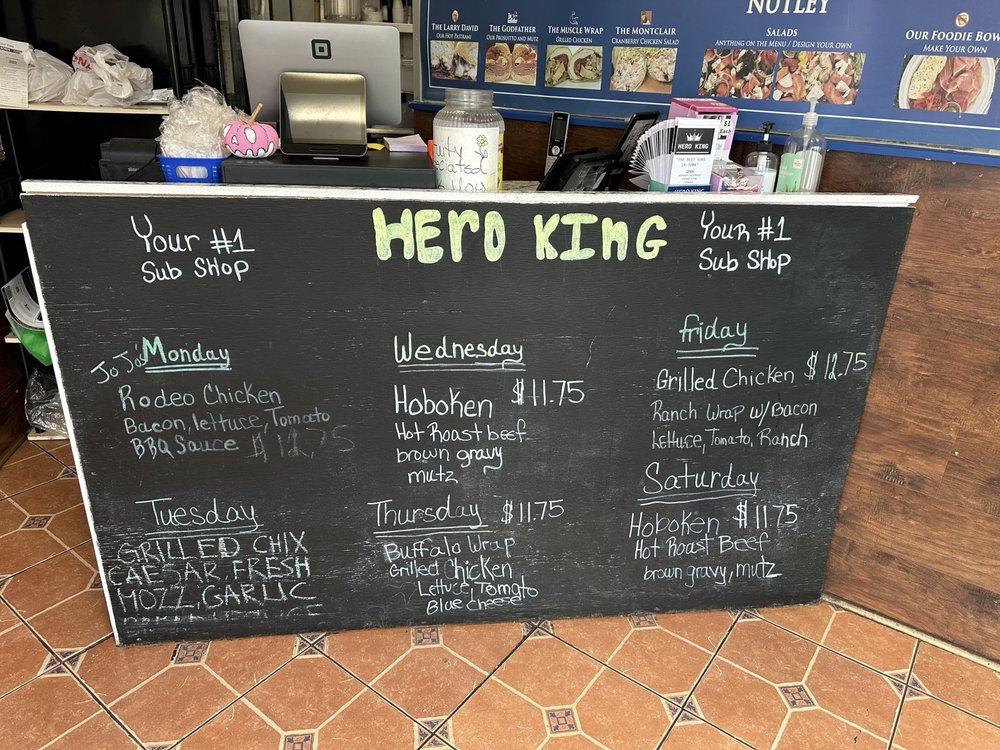 NUTLEY
THE LARRY DAVID
OUR HOT PASTRAMI
THE GODFATHER
OUR PROSIUTTO AND MUTZ
THE MUSCLE WRAP
GRILLED CHICKEN
THE MONTCLAIR
CRANBERRY CHICKEN SALAD
SALADS
ANYTHING ON THE MENU / DESIGN YOUR OWN
OUR FOODIE BOW
MAKE YOUR OWN
$1
Each
HERO KING
"THE BEST SUBS
IN TOWN"
HERO KING
Your #1
Sub Shop
HERO KING
Your #1
Sub Shop
JoJo's Monday
Rodeo Chicken
Bacon, lettuce, Tomato
BBQ Sauce $12.75
Tuesday
GRILLED CHIX
CAESAR, FRESH
MOZZ, GARLIC
Wednesday
Hoboken $11.75
Hot Roast beef
brown gravy
mutz
Thursday $11.75
Buffalo Wrap
Grilled Chicken
Lettuce, Tomato
Blue cheese
friday
Grilled Chicken $12.75
Ranch Wrap w/Bacon
Lettuce, Tomato, Ranch
Saturday
Hoboken $11.75
Hot Roast Beef
brown gravy, mutz